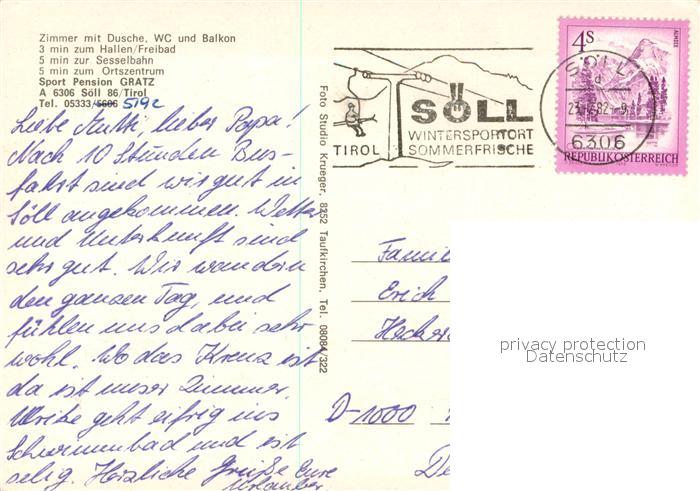 Zimmer mit Dusche, WC und Balkon
3 min zum Hallen/Freibad
5 min zur Sesselbahn
5 min zum Ortszentrum
Sport Pension GRATZ
A 6306 Söll 86/Tirol
Tel. 05333/5606 5192
Liebe Mutti, lieber Pappa!
Nach 10 Stunden Bus-
fahrt sind wir gut in
Söll angekommen. Wetter
und Unterkunft sind
sehr gut. Wir wandern
den ganzen Tag, und
fühlen uns dabei sehr
wohl. Wo das Kreuz ist
da ist unser Zimmer.
Ulrike geht eifrig ins
Schwimmbad und ist
selig. Herzliche Grüße Eure
Urlauber.
Foto Studio Krueger, 8252 Taufkirchen, Tel. 08084/322
SÖLL
WINTERSPORTORT
TIROL SOMMERFRISCHE
4S
ALMSEE
REPUBLIK ÖSTERREICH
SÖLL
d
82-9
6306
Famil
Erich
D-1000
De
privacy protection
Datenschutz